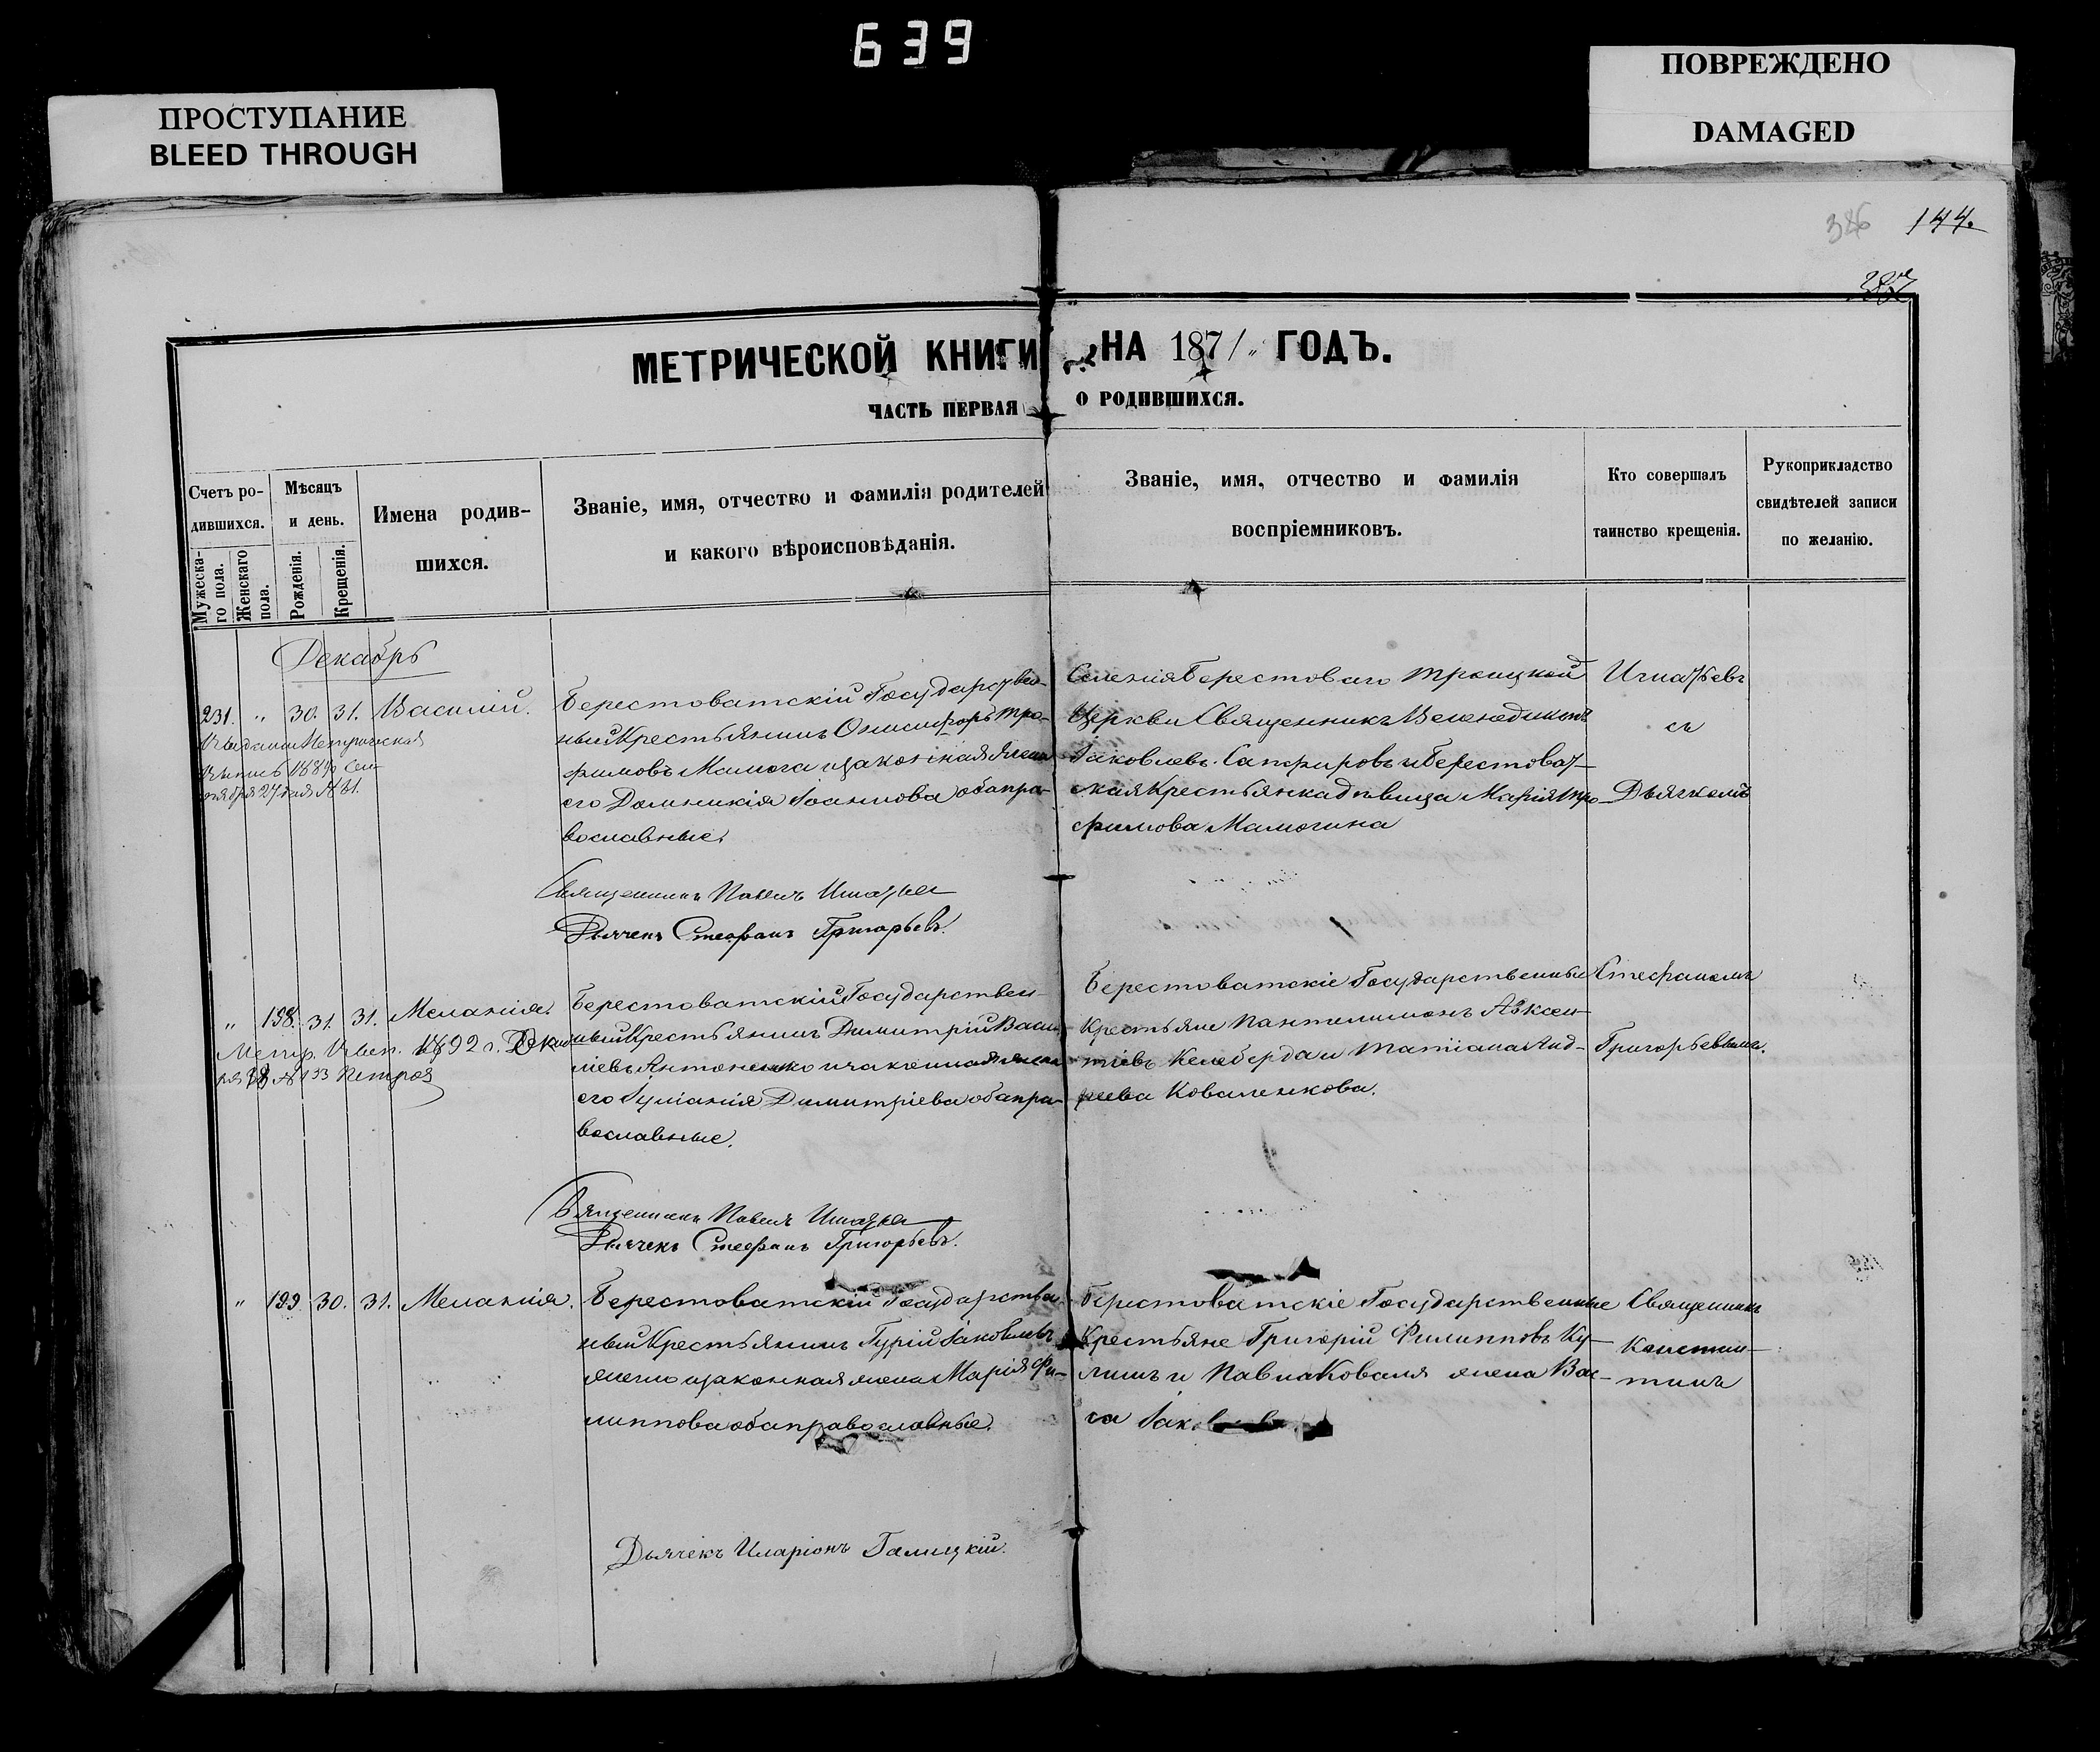 639
ПРОСТУПАНИЕ
BLEED THROUGH
ПОВРЕЖДЕНО
DAMAGED
386 144.
МЕТРИЧЕСКОЙ КНИГИ НА 1871 ГОДЪ.
ЧАСТЬ ПЕРВАЯ О РОДИВШИХСЯ.
Счетъ ро-
дившихся.
Мужеска-
го пола.
Женскаго
пола.
Мѣсяцъ
и день.
Рожденія.
Крещенія.
Имена родив-
шихся.
Званіе, имя, отчество и фамилія родителей
и какого вѣроисповѣданія.
Званіе, имя, отчество и фамилія
воспріемниковъ.
Кто совершалъ
таинство крещенія.
Рукоприкладство
свидѣтелей записи
по желанію.
Декабрь
231. " 30. 31. Василій.
Выдана Метрическая
Выпись 18
27 дня № 81.
Берестоватскій Государствен-
ный Крестьянинъ Онисифоръ Тро-
фимовъ Мамога и законная жена
его Домникія Іоаннова оба пра-
вославные.
Селенія Берестоваго Троицкой
Церкви Священникъ
Іаковлевъ Сапфировъ и Берестоват-
ская Крестьянка дѣвица Марія Тро-
фимова Мамогина
Игнатьевъ
съ
Дьячкомъ
Священникъ Павелъ Игнатьев
Дьячекъ Стефанъ Григорьевъ.
" 198. 31. 31. Меланія.
Метр. 1892 г. Декаб
ря № 133 Петров
Берестоватскій Государствен-
ный Крестьянинъ Димитрій Васи-
ліевъ Антоненко и законная жена
его Іуліанія Димитріева оба пра-
вославные.
Берестоватскіе Государственные
Крестьяне Пантелимонъ Авксен-
тіевъ Келеберда и Татіана Анд-
реева Коваленкова.
Стефаномъ
Григорьевымъ.
Священникъ Павелъ Игнатьев
Дьячекъ Стефанъ Григорьевъ.
" 199. 30. 31. Меланія.
Берестоватскій Государствен-
ный Крестьянинъ Гурій Іаковлевъ
и законная жена Марія Фи-
липпова оба православные.
Берестоватскіе Государственные
Крестьяне Григорій Филипповъ Ку-
лишъ и Павла Коваля жена Вас-
са Іак
Священникъ
Констан-
тинъ
Дьячекъ Иларіонъ Галицкій.